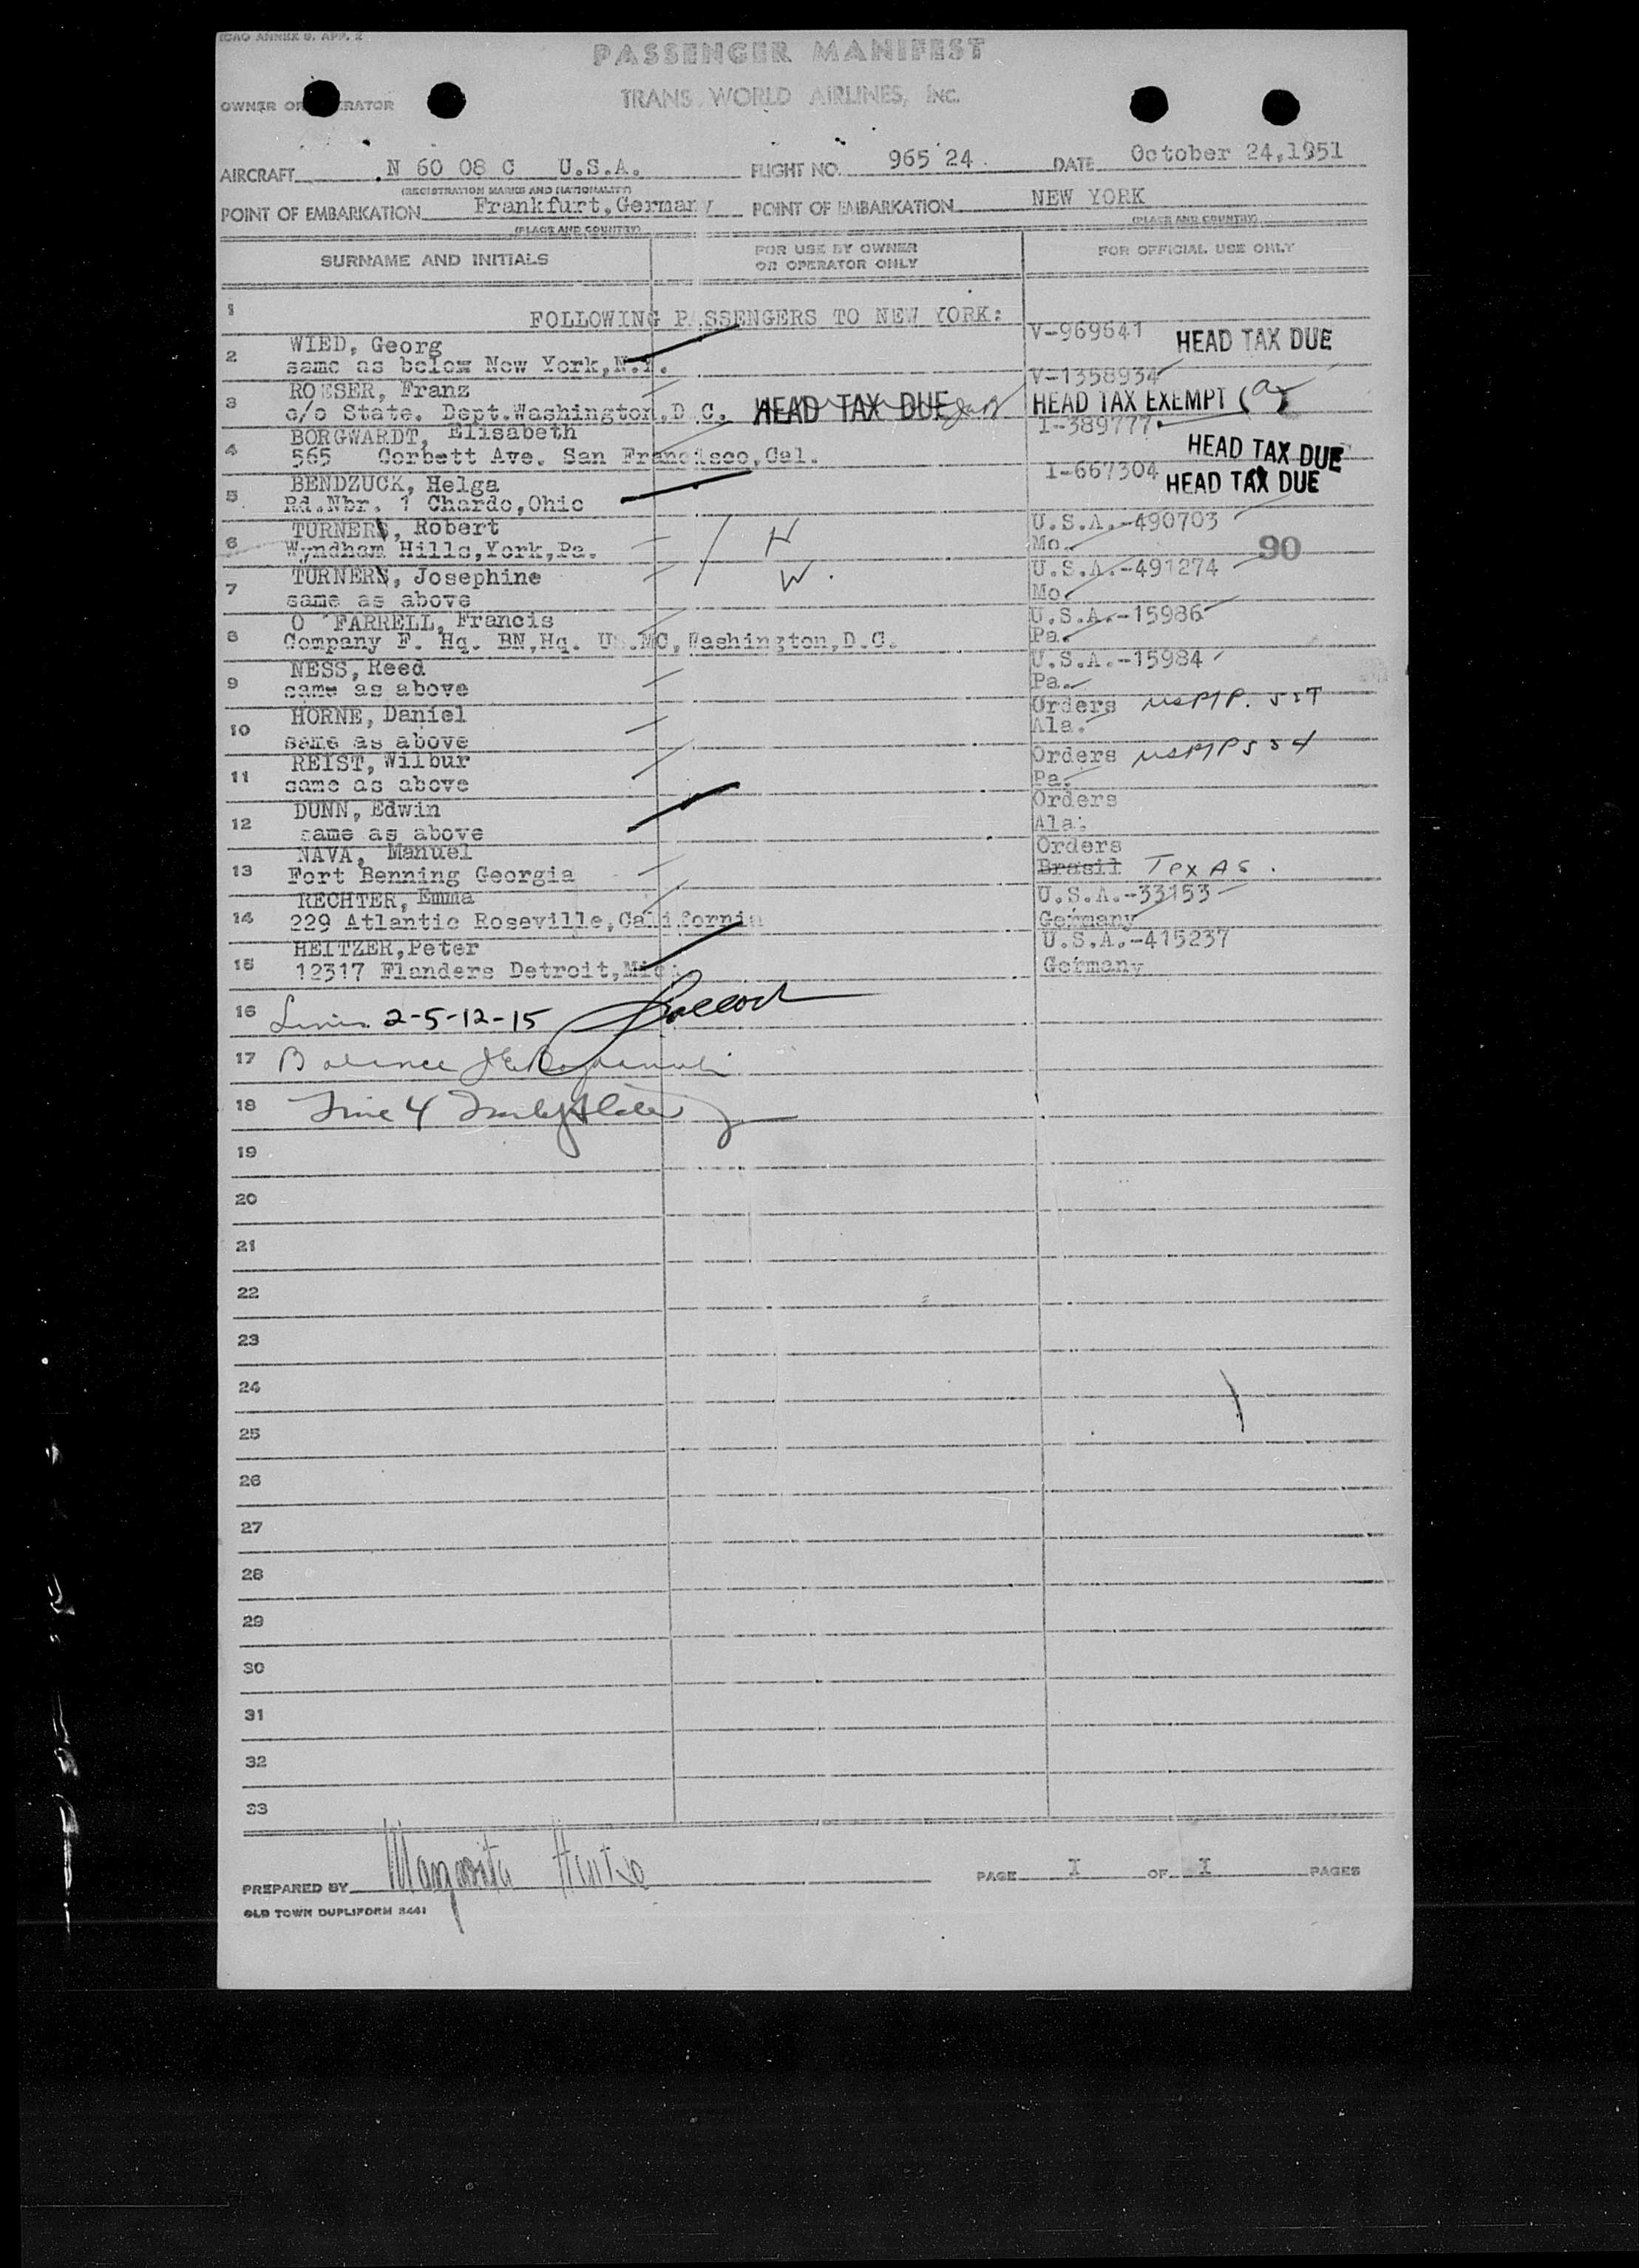 ICAO ANNEX 9, APP. 2
PASSENGER MANIFEST
OWNER OR OPERATOR
TRANS WORLD AIRLINES, INC.
AIRCRAFT N 60 08 C U.S.A. FLIGHT NO. 965 24 DATE October 24,1951
(REGISTRATION MARKS AND NATIONALITY)
POINT OF EMBARKATION Frankfurt.Germany POINT OF EMBARKATION NEW YORK
(PLACE AND COUNTRY) (PLACE AND COUNTRY)
SURNAME AND INITIALS FOR USE BY OWNER OR OPERATOR ONLY FOR OFFICIAL USE ONLY
1 FOLLOWING PASSENGERS TO NEW YORK:
WIED, Georg V-969641 HEAD TAX DUE
2 same as below New York,N.Y.
ROESER, Franz V-1358934
3 c/o State. Dept.Washington,D.C. HEAD TAX DUE HEAD TAX EXEMPT (a)
BORGWARDT, Elisabeth I-389777
4 565 Corbett Ave. San Francisco,Cal. HEAD TAX DUE
BENDZUCK, Helga I-667304 HEAD TAX DUE
5 Rd.Nbr. 1 Chardo,Ohio
TURNERS, Robert U.S.A.-490703
6 Wyndham Hills,York,Pa. H Mo. 90
TURNERS, Josephine W. U.S.A.-491274
7 same as above Mo.
O FARRELL, Francis U.S.A.-15986
8 Company F. Hq. BN,Hq. US.MC,Washington,D.C. Pa.
NESS, Reed U.S.A.-15984
9 same as above Pa.
HORNE, Daniel Orders
10 same as above Ala.
REIST, Wilbur Orders
11 same as above Pa.
DUNN, Edwin Orders
12 same as above Ala.
NAVA, Manuel Orders
13 Fort Benning Georgia Brasil Texas.
RECHTER, Emma U.S.A.-33153
14 229 Atlantic Roseville,California Germany
HEITZER,Peter U.S.A.-415237
15 12317 Flanders Detroit,Mich. Germany
16 Lines 2-5-12-15
17 Balance
18 Line 4
19
20
21
22
23
24
25
26
27
28
29
30
31
32
33
PREPARED BY Margarita PAGE I OF I PAGES
OLD TOWN DUPLIFORM 8441